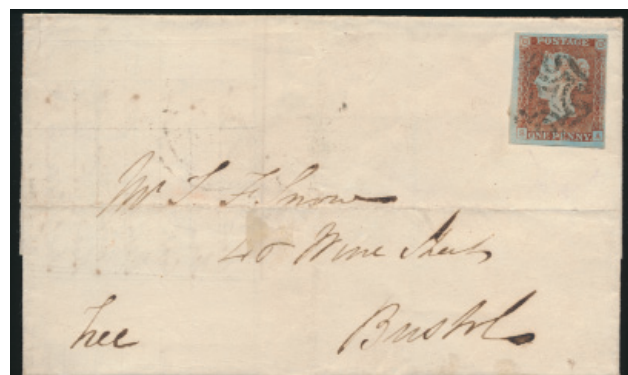 POSTAGE
ONE PENNY
Mr T. F. Snow
40 Wine Street
free Bristol